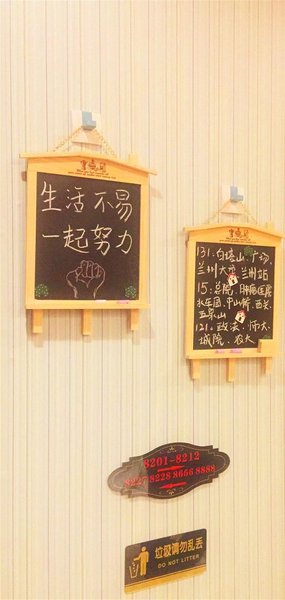 生活不易
一起努力
131:白塔山,广场,
兰州大学,兰州站
15:总院,肿瘤医院
水车园,中山桥,西关,
五泉山
121:政法,师大,
城院,农大
8201-8212
8227 8228 8666 8888
垃圾请勿乱丢
DO NOT LITTER